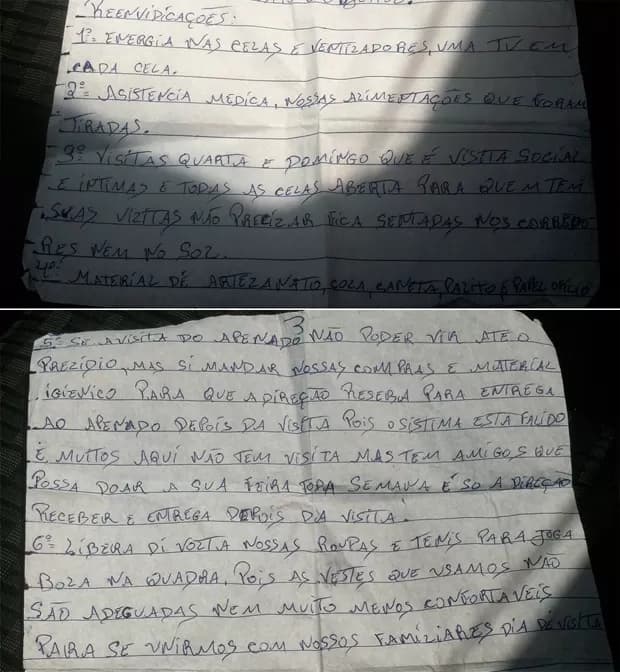 - REENVIDICAÇÕES:
1º= ENERGIA NAS CELAS E VENTILADORES, UMA TV EM
CADA CELA.
2º= ASISTENCIA MEDICA, NOSSAS ALIMEPTAÇÕES QUE FORAM
TIRADAS.
3º= VISITAS QUARTA E DOMINGO QUE É VISTIA SOCIAL
E INTIMAS E TODAS AS CELAS ABERTA PARA QUEM TEM
SUAS VIZITAS NÃO PRECIZAR FICA SENTADAS NOS CORREDO
RES NEM NO SOL.
4º= MATERIAL DÉ ARTEZANATO, COLA, CANETA, PALITO E PAPEL OFICIO
3
5º= SE A VISITA DO APENADO NÃO PODER VIR ATÉ O
PREZIDIO, MAS SI MANDAR NOSSAS COMPRAS E MATERIAL
IGIENICO PARA QUE A DIREÇÃO RESEBA PARA ENTREGA
AO APENADO DEPOIS DA VISITA POIS O SISTIMA ESTA FALIDO
E MUITOS AQUI NÃO TEM VISITA MAS TEM AMIGOS QUE
POSSA DOAR A SUA FEIRA TODA SEMANA É SO A DIREÇÃO
RECEBER E ENTREGA DEPOIS DA VISITA.
6º= LIBERA DI VOLTA NOSSAS ROUPAS E TENIS PARA JOGA
BOLA NA QUADRA. POIS AS VESTES QUE USAMOS NÃO
SÃO ADEGUADAS NEM MUITO MENOS CONFORTAVEIS
PARA SE UNIRMOS COM NOSSOS FAMILIARES DIA DE VISITA